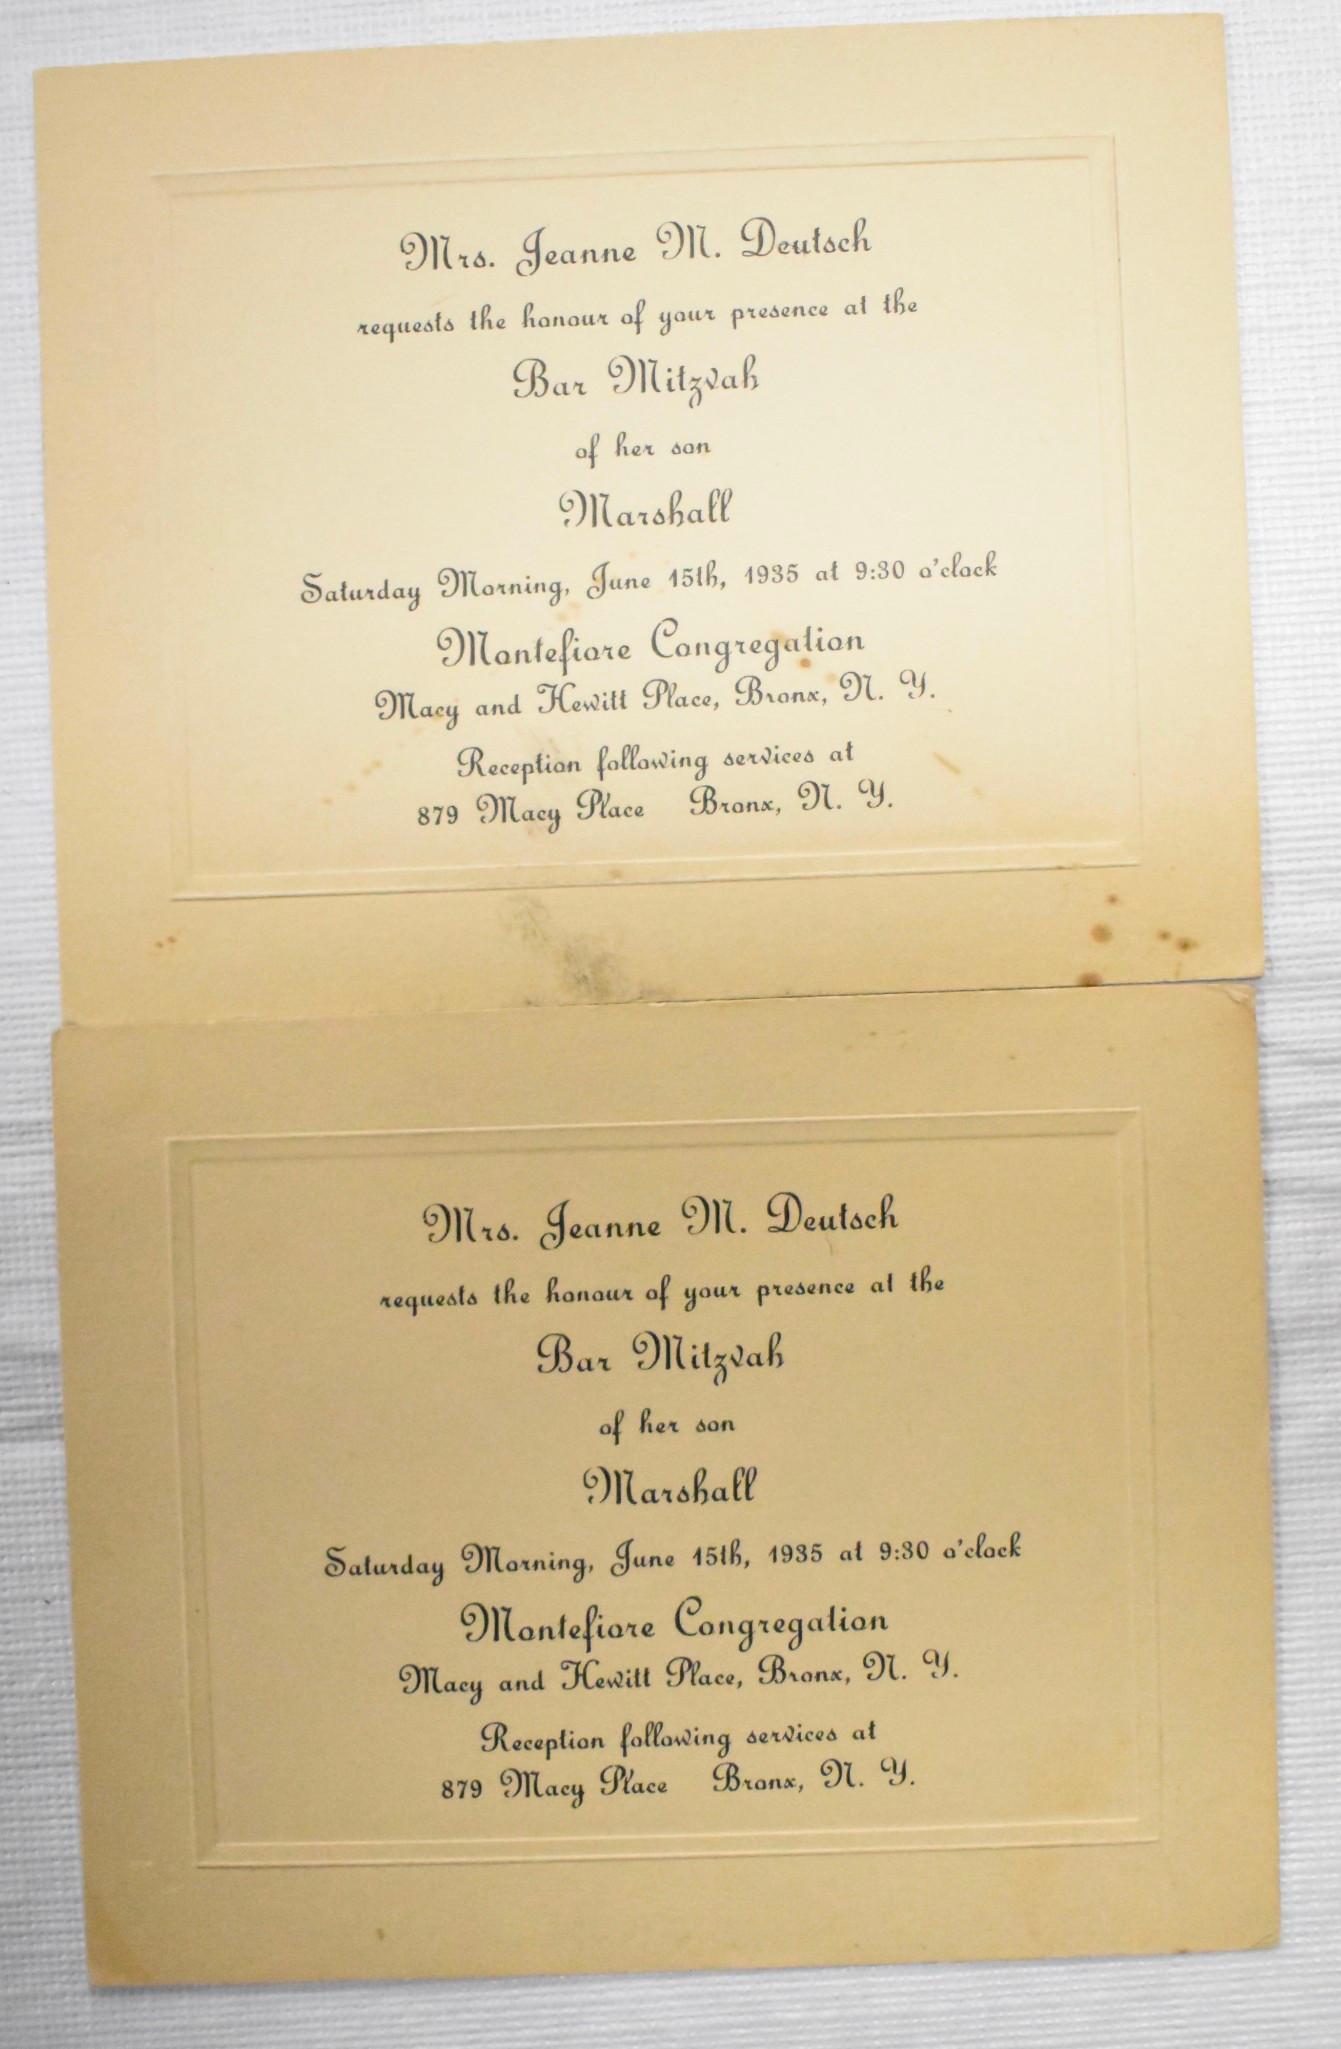 Mrs. Jeanne M. Deutsch
requests the honour of your presence at the
Bar Mitzvah
of her son
Marshall
Saturday Morning, June 15th, 1935 at 9:30 o'clock
Montefiore Congregation
Macy and Hewitt Place, Bronx, N. Y.
Reception following services at
879 Macy Place Bronx, N. Y.
Mrs. Jeanne M. Deutsch
requests the honour of your presence at the
Bar Mitzvah
of her son
Marshall
Saturday Morning, June 15th, 1935 at 9:30 o'clock
Montefiore Congregation
Macy and Hewitt Place, Bronx, N. Y.
Reception following services at
879 Macy Place Bronx, N. Y.